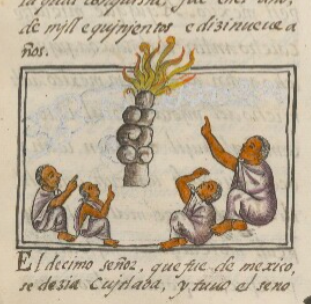 la qual conquista, fue enel año,
de mjll equjnjentos edizinueve a
ños.
El decimo señor, que fue de mexico,
se dezia Cujtlaoa, y tuuo el seño